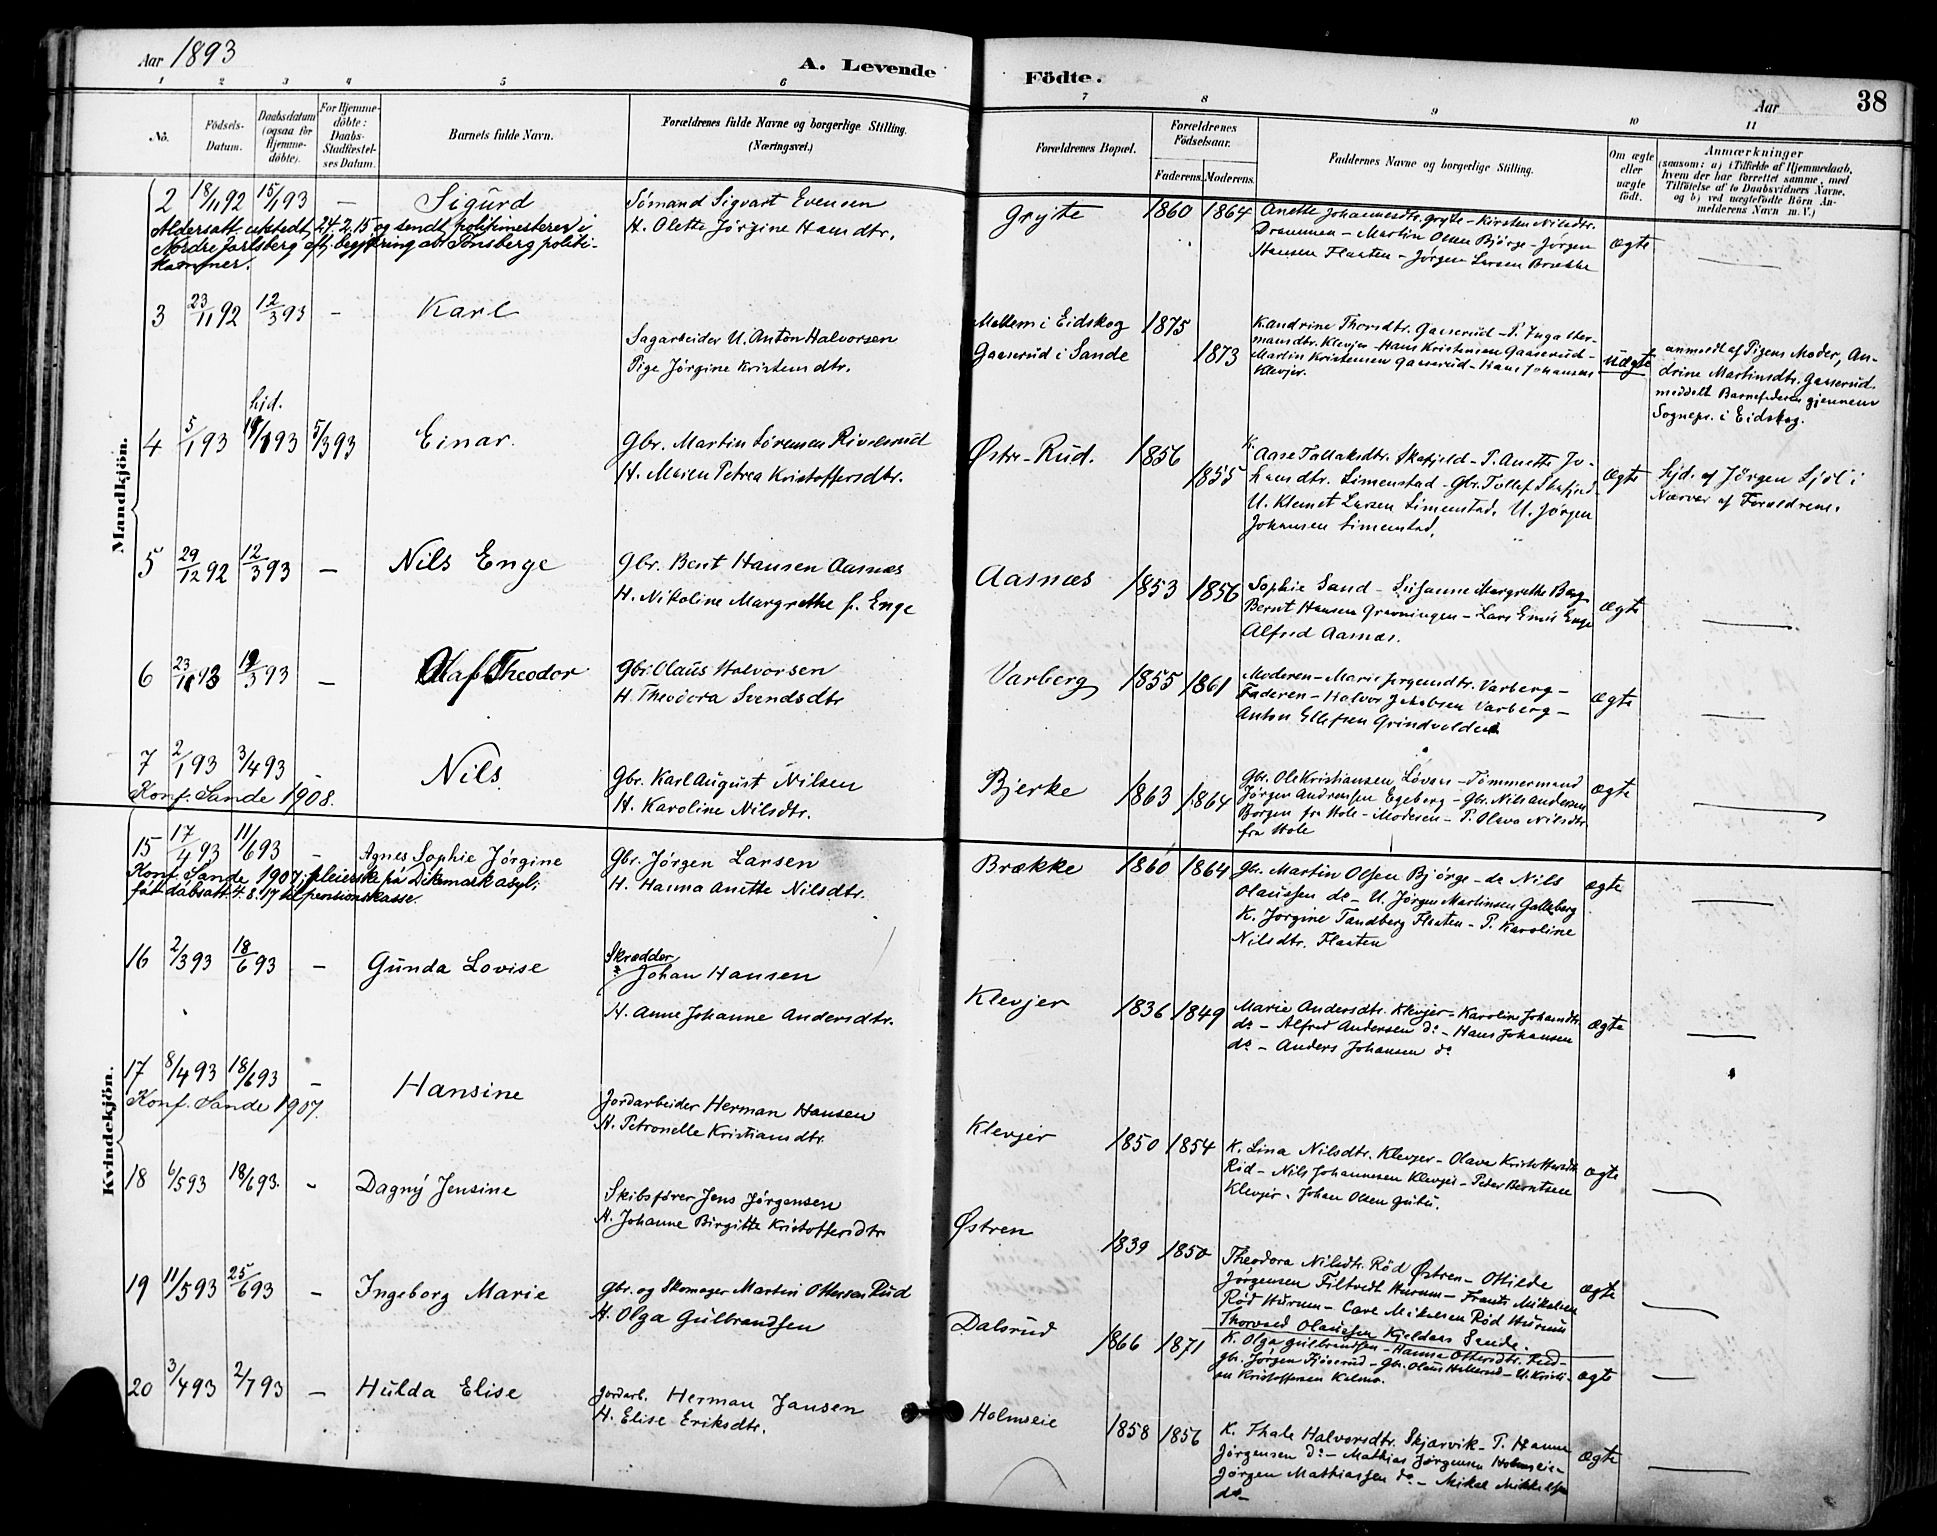 Aar 1893
A. Levende Födte.
Aar
38
1 2 3 4 5 6 7 8 9 10 11
No.
Födsels-Datum.
Daabsdatum (ogsaa for Hjemmedöbte).
For Hjemmedöbte: Daabs-Stadfæstelses Datum.
Barnets fulde Navn.
Forældrenes fulde Navne og borgerlige Stilling. (Næringsvei.)
Forældrenes Bopæl.
Forældrenes Födselsaar.
Faderens. Moderens.
Faddernes Navne og borgerlige Stilling.
Om ægte eller uægte födt.
Anmærkninger
(saasom: a) i Tilfælde af Hjemmedaab, hvem der har forrettet samme, med Tilföielse af to Daabsvidners Navne, og b) ved uægtefödte Börn Anmelderens Navn m. V.)
Mandkjön.
2 18/11 92 15/1 93 – Sigurd
Sömand Sigvart Evensen
H. Olette Jörgine Hansdtr.
Gryte 1860 1864
Anette Johannesdtr. Gryte – Kirsten Nilsdtr.
Drammen – Martin Olsen Björge – Jörgen
Hansen Flaaten – Jörgen Larsen Brække
ægte
Aldersatt. utstedt 24.2.15 og sendt politimesteren i
Nordre Jarlsberg eft. begjæring av Tönsberg politi-
kammer.
3 23/11 92 12/3 93 – Karl
Sagarbeider U. Anton Halvorsen
Pige Jörgine Kristensdtr.
Mellem i Eidskog 1875
Gaaserud i Sande 1873
K. Andrine Thorsdtr. Gaaserud – P. Inga Her-
mansdtr. Klevjer – Hans Kristensen Gaaserud –
Martin Kristensen Gaaserud – Hans Johansen
Klevjer.
uægte
anmeldt af Pigens Moder, An-
drine Martinsdtr. Gaaserud.
meddelt Barnefaderen gjennem
Sognepr. i Eidskog.
4 5/1 93 hjd. 19/1 93 5/3 93 Einar.
Gbr. Martin Sörensen Rivelsrud
H. Maren Petrea Kristoffersdtr.
Østre-Rud. 1856 1855
K. Aase Tollaksdtr. Skafjeld – P. Anette Jo-
hansdtr. Limenstad – Gbr. Tollef Skafjeld –
U. Klemet Larsen Limenstad. U. Jörgen
Johansen Limenstad.
ægte
hjd. af Jörgen Sjöl i
Nærvær af Forældrene.
5 29/12 92 12/3 93 – Nils Enge
Gbr. Bent Hansen Aasnæs
H. Nikoline Margrethe f. Enge
Aasnæs 1853 1856
Sophie Sand – Susanne Margrethe Berg
Bernt Hansen Gravningen – Lars Emil Enge
Alfred Aasnæs.
ægte
6 23/1 93 19/3 93 – Olaf Theodor
Gbr. Olaus Halvorsen
H. Theodora Svendsdtr
Varberg 1855 1861
Moderen – Marie Jörgensdtr. Varberg –
Faderen – Halvor Jakobsen Varberg –
Anton Ellefsen Grindvolden
ægte
7 2/1 93 3/4 93 – Nils.
Gbr. Karl August Nilsen
H. Karoline Nilsdtr.
Bjerke 1863 1864
Gbr. Ole Kristiansen Lövaas – Tömmermand
Jörgen Andreassen Egeberg – Gbr. Nils Andersen
Borgen fra Hole – Moderen – P. Olava Nilsdtr.
fra Hole
ægte
Konf. Sande 1908.
Kvindekjön.
15 17/4 93 11/6 93 – Agnes Sophie Jörgine
Gbr. Jörgen Larsen
H. Hanna Anette Nilsdtr.
Brække 1860 1864
Gbr. Martin Olsen Björge – do Nils
Olaussen do – U. Jörgen Martinsen Galleberg
K. Jörgine Tandberg Flaaten – P. Karoline
Nilsdtr. Flaaten
ægte
Konf. Sande 1907; pleierske på Dikemark asyl;
fåt dåbsatt. 4.8.17 til pensionskasse.
16 2/3 93 18/6 93 – Gunda Lovise
Skrædder
Johan Hansen
H. Anne Johanne Andersdtr.
Klevjer 1836 1849
Marie Andersdtr. Klevjer – Karoline Johansdtr.
do – Alfred Andersen do – Hans Johansen
do – Anders Johansen do
ægte
17 8/4 93 18/6 93 – Hansine
Jordarbeider Herman Hansen
H. Petronelle Kristiansdtr.
Klevjer 1850 1854
K. Lina Nilsdtr. Klevjer – Olava Kristoffersdtr.
Rid – Nils Johannesen Klevjer – Peter Berntsen
Klevjer. Johan Olsen Gutu.
ægte
Konf. Sande 1907.
18 6/5 93 18/6 93. – Dagny Jensine
Skibsförer Jens Jörgensen
H. Johanne Birgitte Kristoffersdtr
Østren 1839 1850
Theodora Nilsdtr. Röd Østren – Otilde
Jörgensen Filtvedt Hurum – Frants Mikelsen
Röd Hurum – Carl Mikelsen Röd Hurum
Thorvald Olaussen Kjeldaas Sande.
ægte
19 11/5 93 25/6 93 – Ingeborg Marie
Gbr. og Skomager Martin Ottersen Rud
H. Olga Gulbrandsen
Dalsrud 1866 1871
K. Olga Gulbrandsen – Hanna Ottersdtr. Rud –
gbr. Jörgen – gbr. Olaus – U. Kristi-
an Kristoffersen Holmö.
ægte
20 3/4 93 2/7 93 – Hulda Elise
Jordarb. Herman Jansen
H. Elise Eriksdtr.
Holmseie 1858 1856
K. Thale Halvorsdtr. Skjærvik – P. Hanna
Jörgensen do – Mathias Jörgensen Holmseie –
Jörgen Mathiassen do – Mikal Mikkelsen
do –
ægte